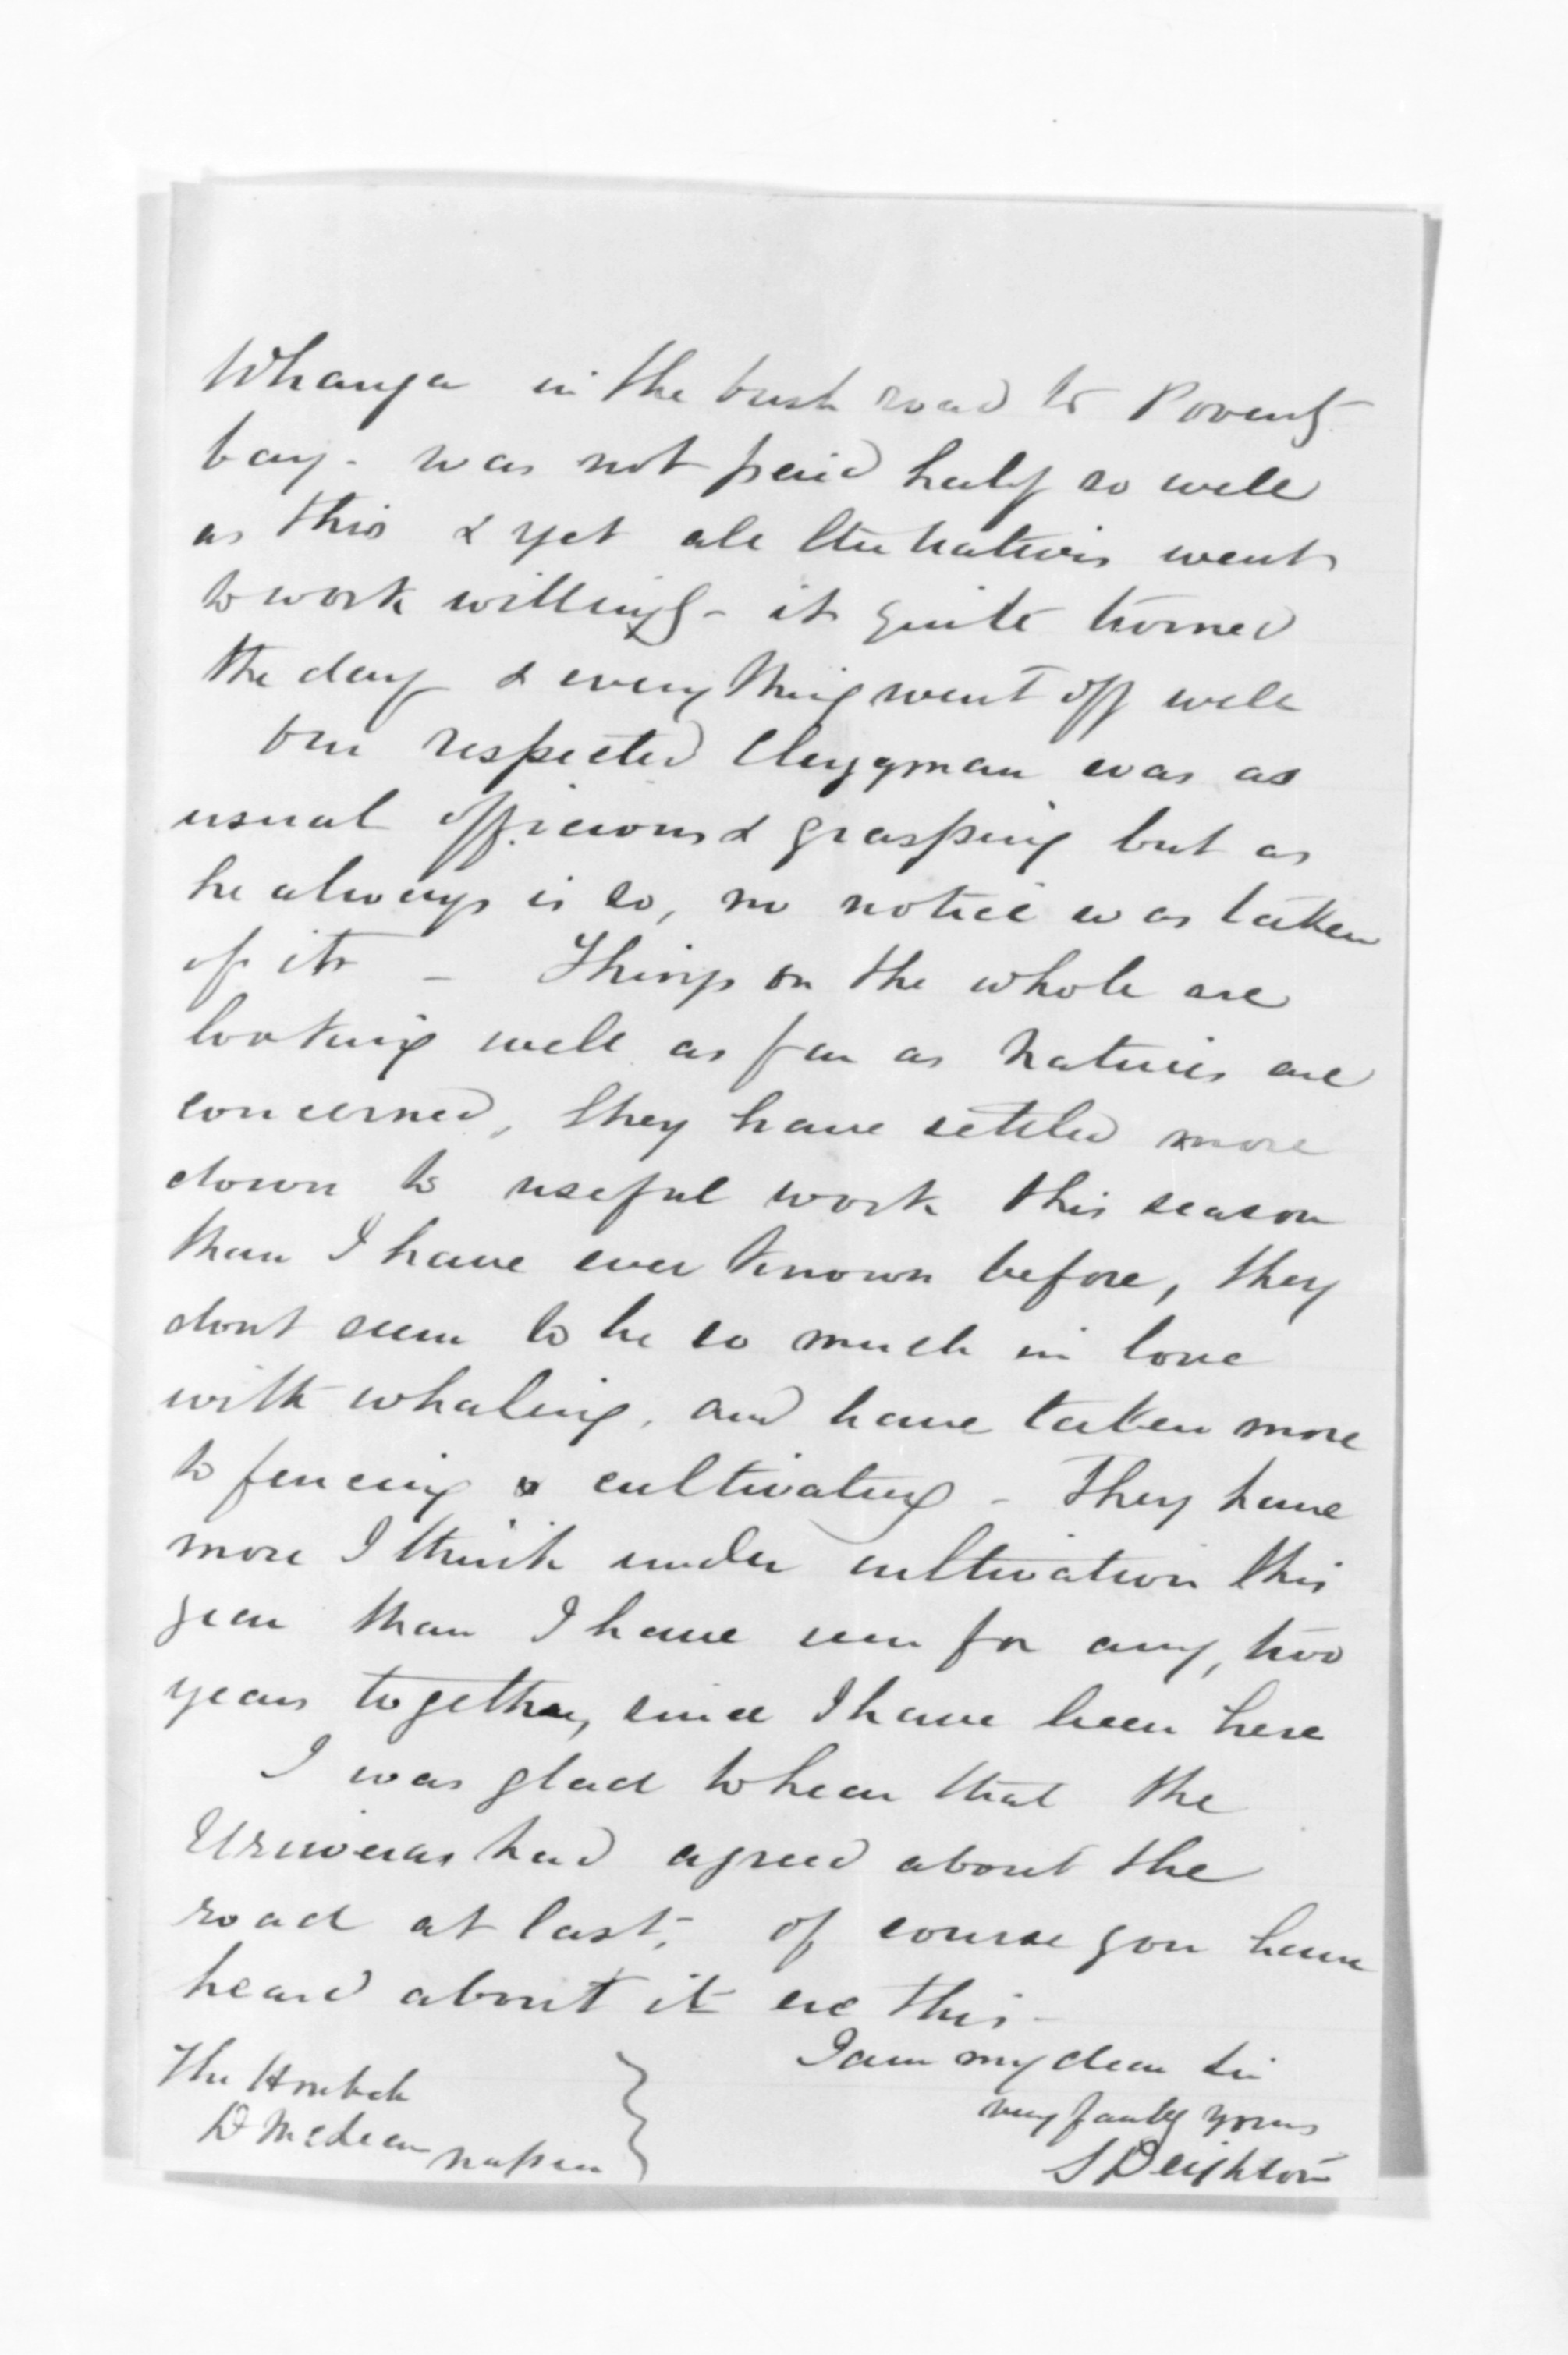 Whanga in the bush road to Poverty
bay - was not paid half so well
as this & yet all the natives went
to work willingly - it quite turned
the day & every thing went off well
Our respected Clergyman was as
usual officious & grasping but as
he always is so, no notice was taken
of it - Things on the whole are
looking well as far as Natives are
concerned, they have settled more
down to useful work this season
than I have ever known before, they
dont seem to be so much in love
with whaling, and have taken more
to fencing & cultivating - They have
more I think under cultivation this
year than I have seen for any, two
years together, since I have been here
I was glad to hear that the
Uriweras had agreed about the
road at last, of course you have
heard about it ere this -
I am my dear Sir
very faithfy yours
S Deighton
The Honble
D McLean
Napier